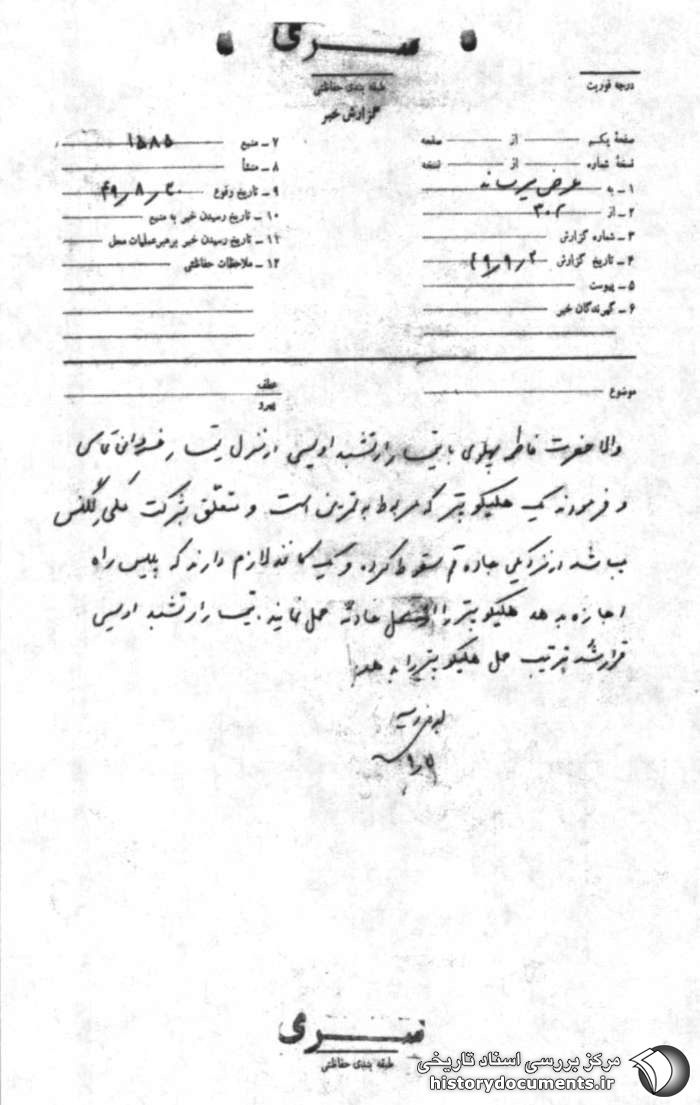 سری
طبقه بندی حفاظتی
گزارش خبر
درجه فوریت
صفحهٔ یکم از صفحه
نسخهٔ شماره از نسخه
۱ـ به عرض میرساند
۲ـ از ۳۰۲
۳ـ شماره گزارش
۴ـ تاریخ گزارش ۴۹٫۹٫۲
۵ـ پیوست
۶ـ گیرندگان خبر
۷ـ منبع ۱۵۸۵
۸ـ منشأ
۹ـ تاریخ وقوع ۴۹٫۸٫۳۰
۱۰ـ تاریخ رسیدن خبر به منبع
۱۱ـ تاریخ رسیدن خبر برهبر عملیات محل
۱۲ـ ملاحظات حفاظتی
موضوع
عطف
پیرو
والاحضرت فاطمه پهلوی با تیمسار ارتشبد اویسی از منزل تیمسار خسروانی تماس
و فرمودند یک هلیکوپتر که مربوط به تمرین است و متعلق بشرکت
میباشد در نزدیکی جاده قم سقوط کرده و یک لازم دارند که پلیس راه
اجازه بدهد هلیکوپتر را از محل حادثه حمل نمایند. تیمسار ارتشبد اویسی
قرار شد ترتیب حمل هلیکوپتر را بدهد.
سری
طبقه بندی حفاظتی
مرکز بررسی اسناد تاریخی
historydocuments.ir